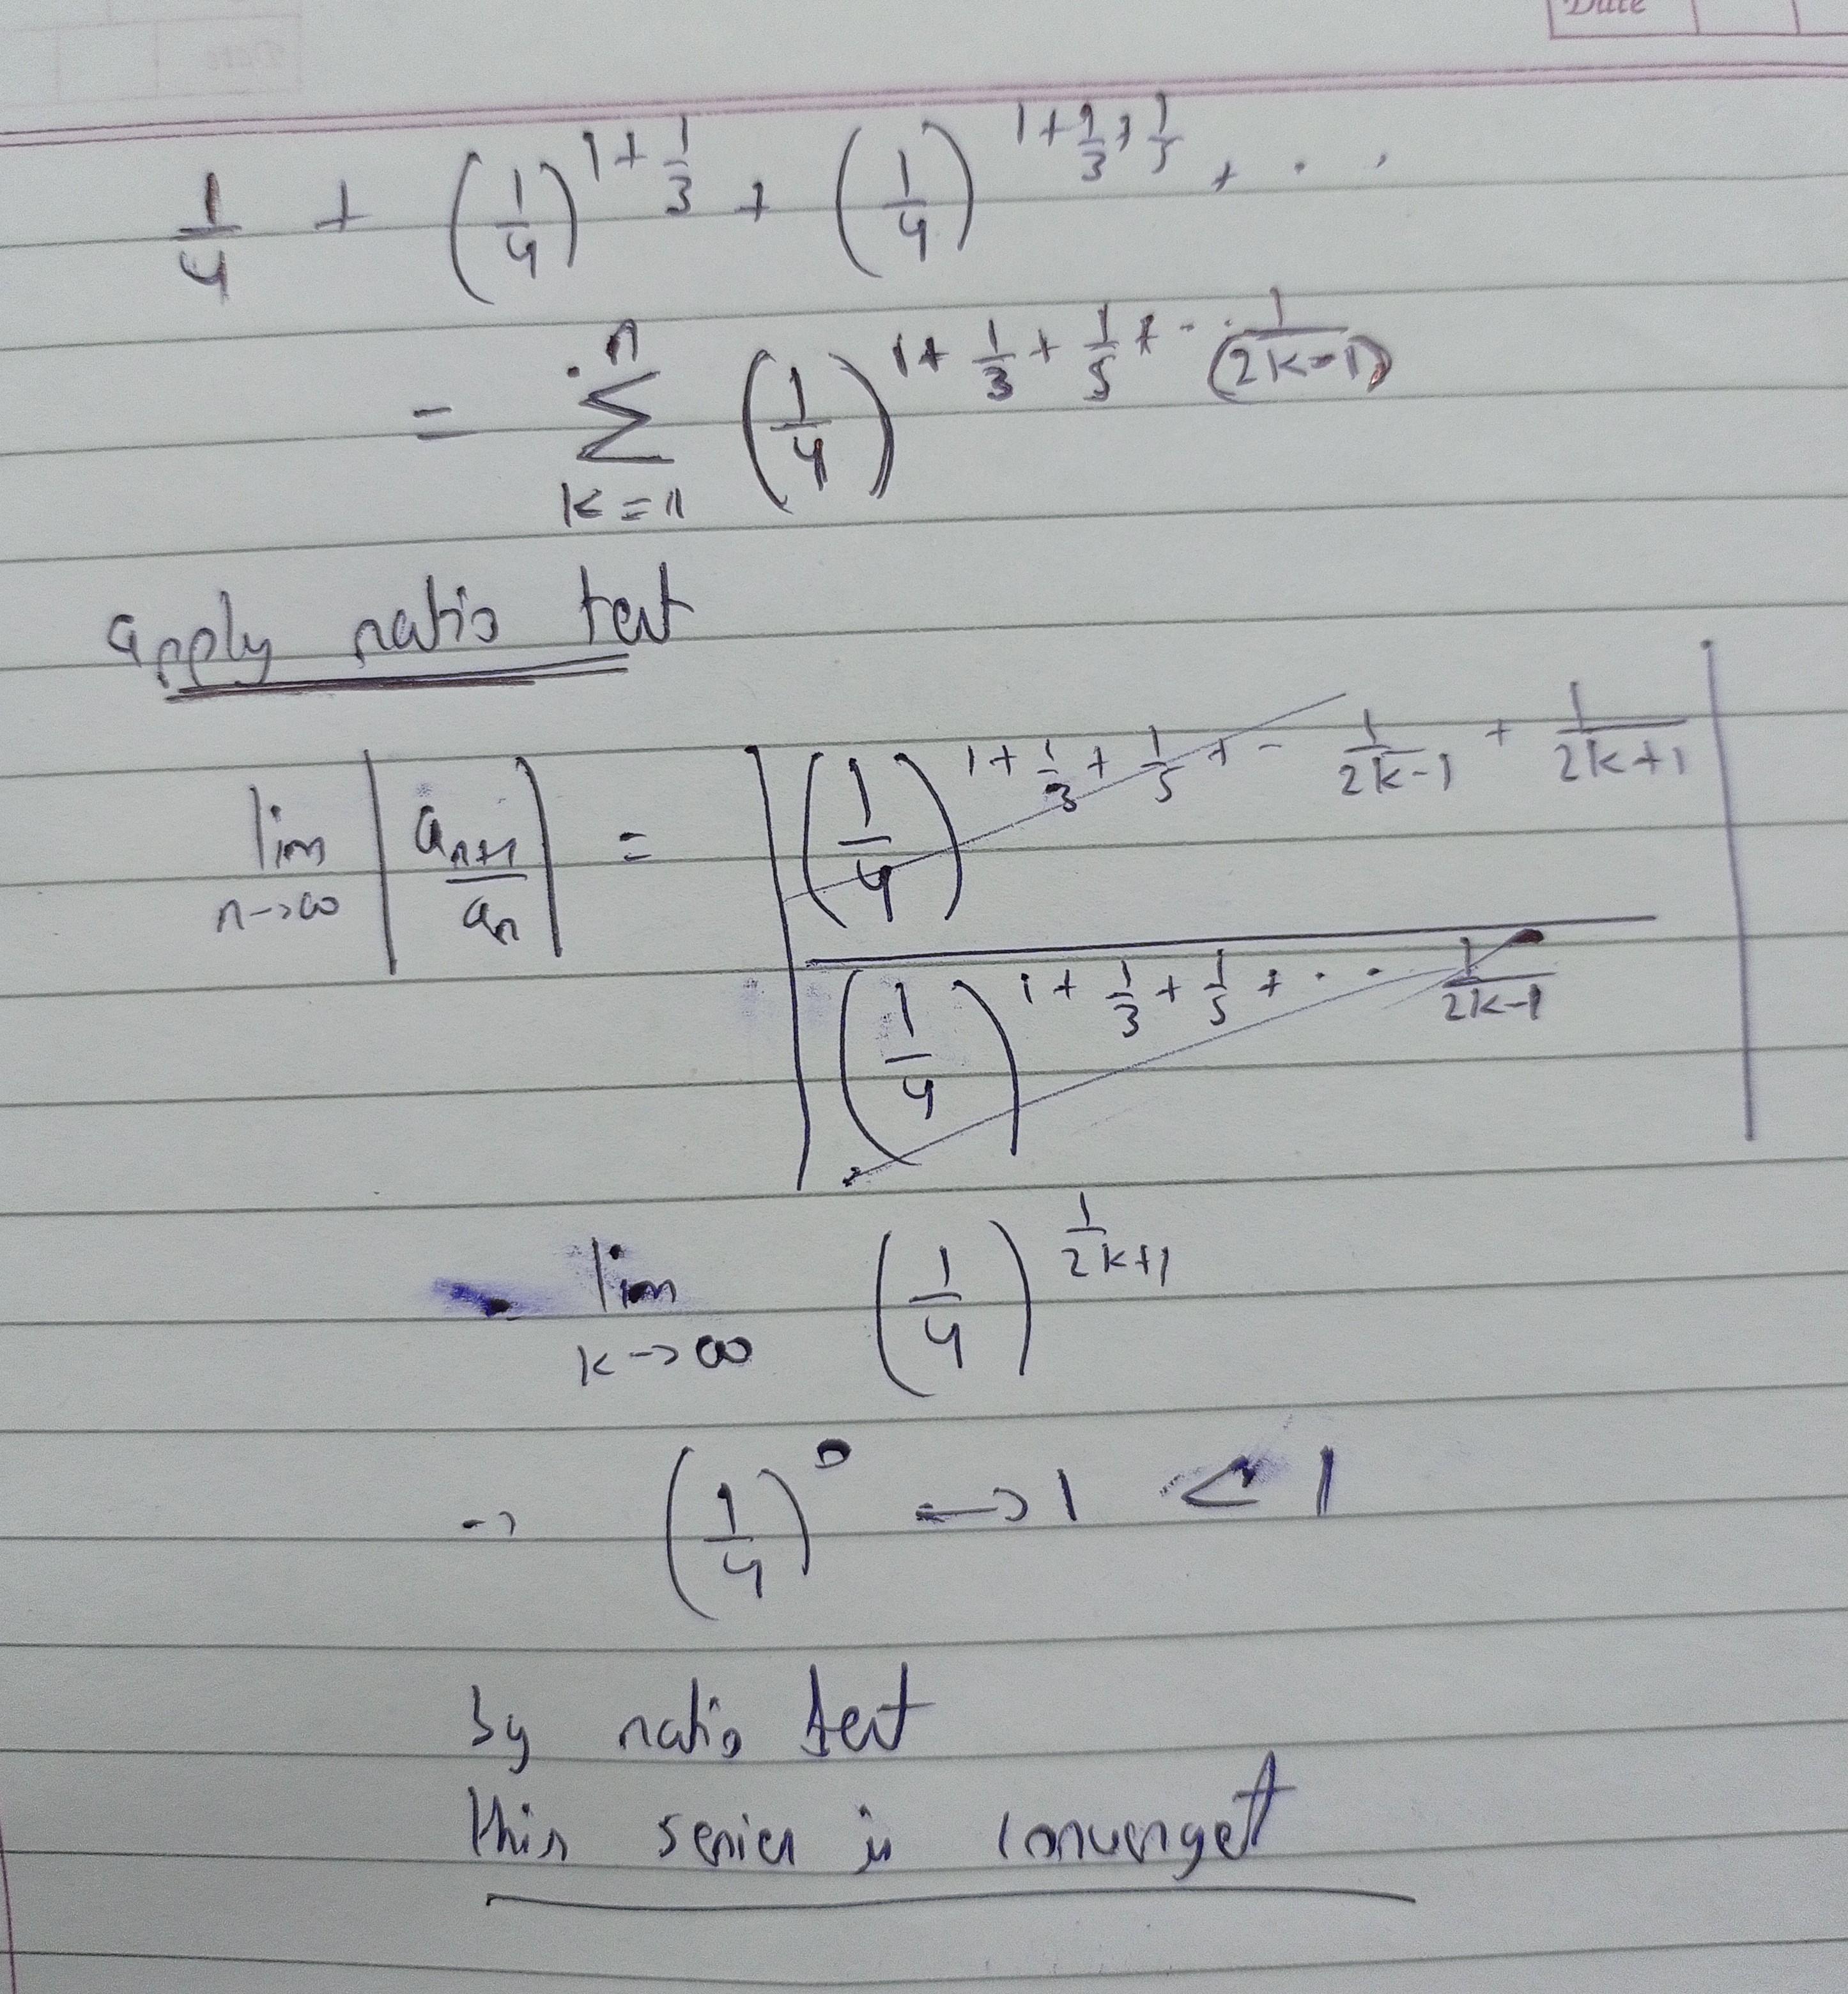 Date
1/4 + (1/4)^{1+1/3} + (1/4)^{1+1/3+1/5} + . . .
= \sum_{k=1}^{n} (1/4)^{1+1/3+1/5+ - . . 1/(2k-1)}
apply ratio test
lim_{n→∞} |a_{n+1}/a_n| = |(1/4)^{1+1/3+1/5+ - 1/2k-1 + 1/2k+1} / (1/4)^{1+1/3+1/5+ . . 1/2k-1}|
lim_{k→∞} (1/4)^{1/2k+1}
→ (1/4)^0 → 1 < 1
by ratio test
this series is converget